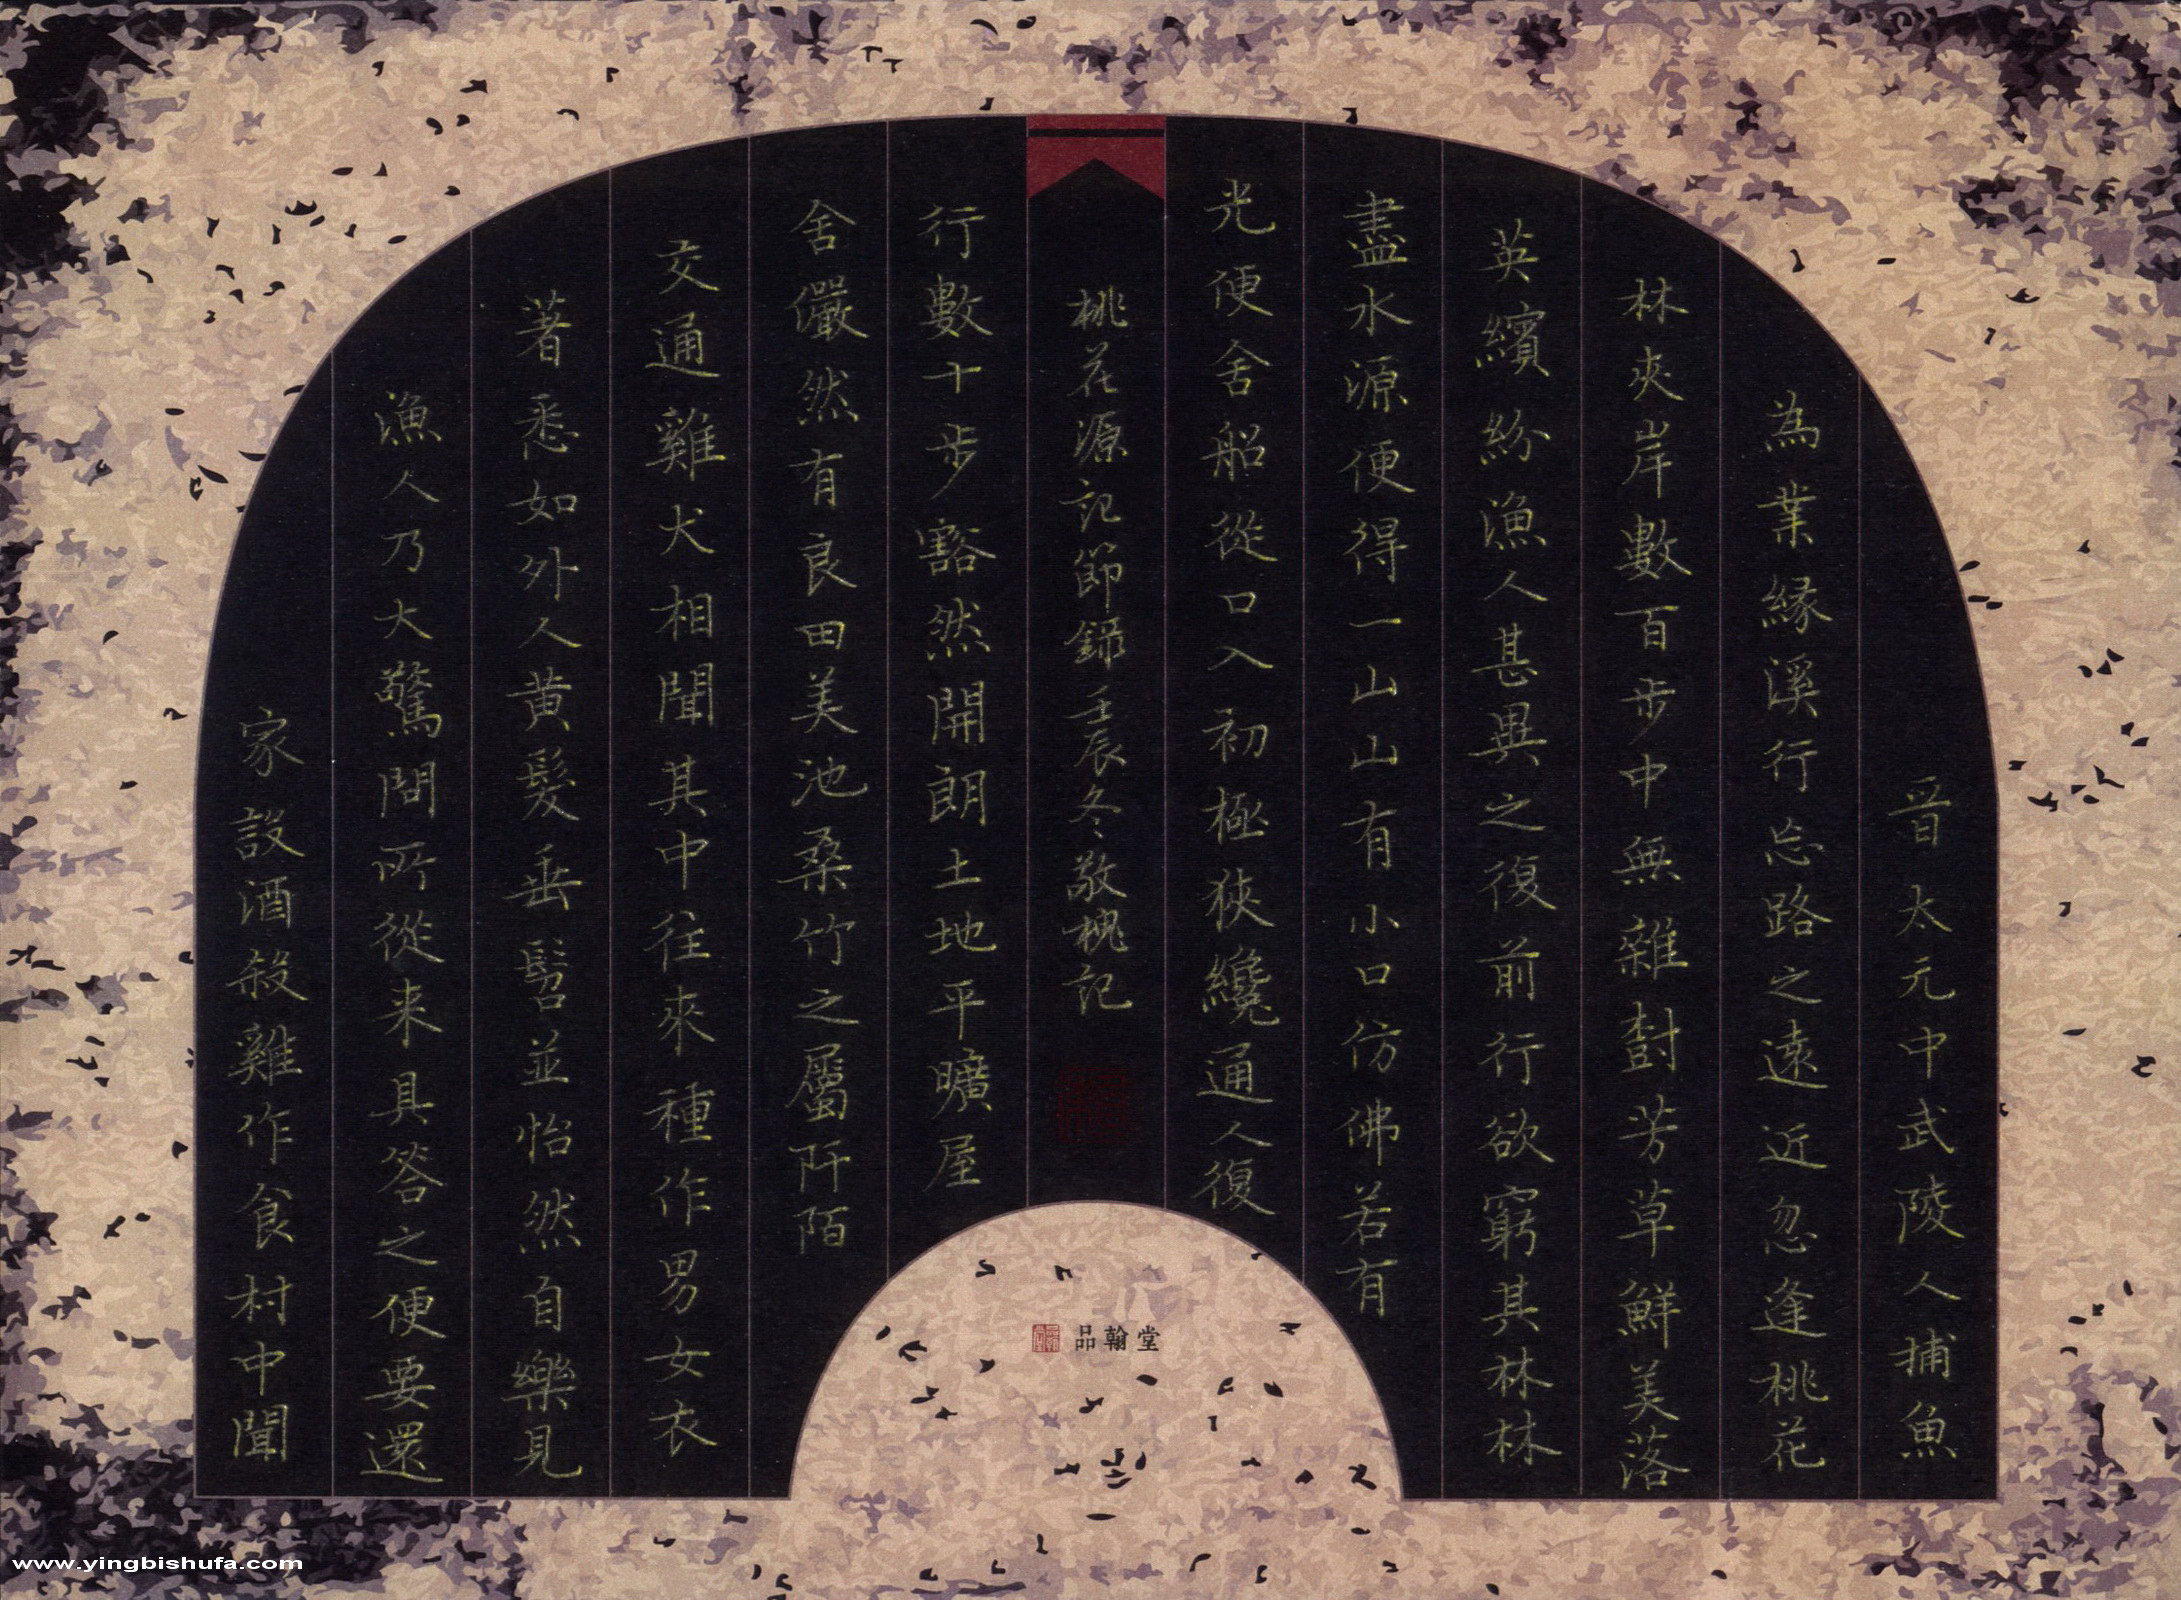 晉太元中武陵人捕魚
為業緣溪行忘路之遠近忽逢桃花
林夾岸數百步中無雜樹芳草鮮美落
英繽紛漁人甚異之復前行欲窮其林林
盡水源便得一山山有小口仿佛若有
光便舍船從口入初極狹纔通人復
桃花源記節錄壬辰冬敬槐記
行數十步豁然開朗土地平曠屋
舍儼然有良田美池桑竹之屬阡陌
交通雞犬相聞其中往來種作男女衣
著悉如外人黃髮垂髫並怡然自樂見
漁人乃大驚問所從来具答之便要還
家設酒殺雞作食村中聞
品翰堂
www.yingbishufa.com